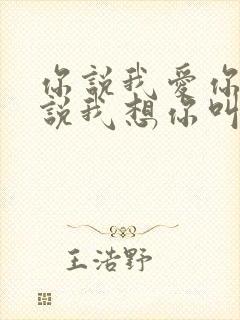 你說我愛你
說我想你叫
王浩野